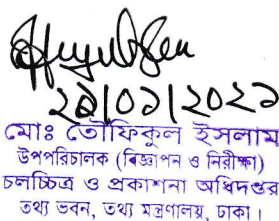 ২৪/০১/২০২১
মোঃ তৌফিকুল ইসলাম
উপপরিচালক (বিজ্ঞাপন ও নিরীক্ষা)
চলচ্চিত্র ও প্রকাশনা অধিদপ্তর
তথ্য ভবন, তথ্য মন্ত্রণালয়, ঢাকা।